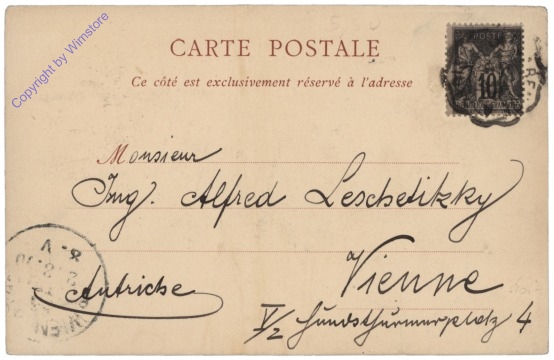 Copyright by Wimstore
CARTE POSTALE
Ce côté est exclusivement réservé à l'adresse
POSTE
10
Monsieur
Ing. Alfred Leschetitzky
Vienne
Autriche
V/2 Hundsthurmerplatz 4
WIEN
8. V